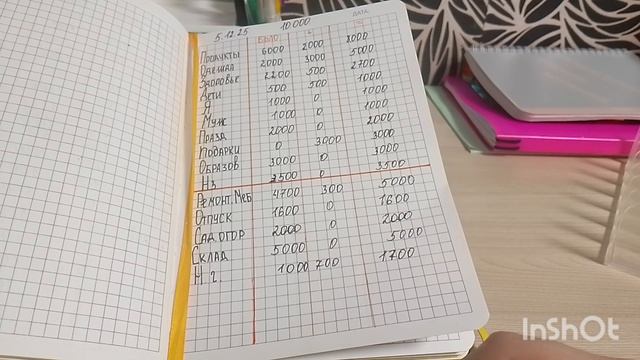 5.12.25 10 000 ДАТА
БЫЛО
Продукты 6000 2000 8000
2000 3000 5000
Здоровье 2200 500 2700
Дети 500 500 1000
Я 1000 0 1000
Муж 1000 0 1000
Празд 2000 0 2000
Подарки 0 3000 3000
Образов 3000 0 3000
Нз 3500 0 3500
Ремонт.Меб 4700 300 5000
Отпуск 1600 0 1600
Сад огор 2000 0 2000
Склад 5000 0 5000
Н г 1000 700 1700
InShOt